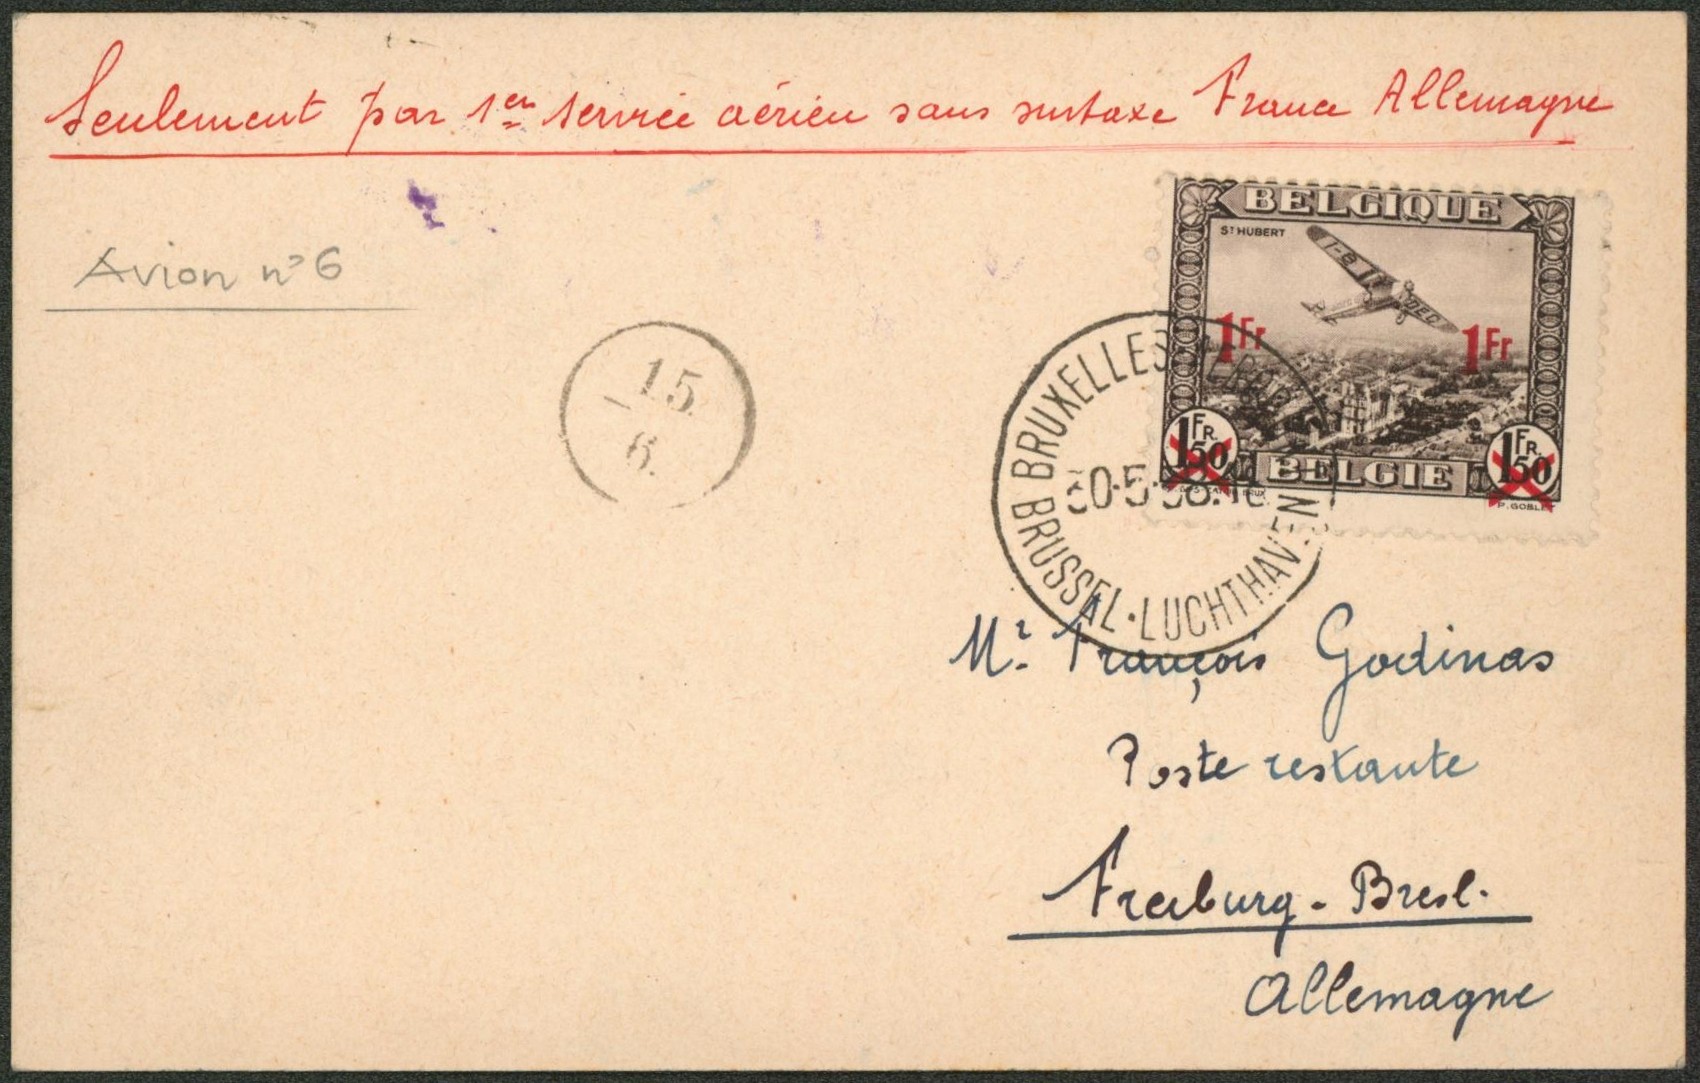 Seulement par 1er service aérien sans surtaxe France Allemagne
Avion n° 6
15.
6.
BELGIQUE
ST HUBERT
1 Fr 1 Fr
1 FR. 50 1 FR. 50
BELGIE
P. GOBLET
BRUXELLES
BRUSSEL · LUCHTHAVEN
30-5-38.
Mr. François Godinas
Poste restante
Freiburg - Bresl.
Allemagne